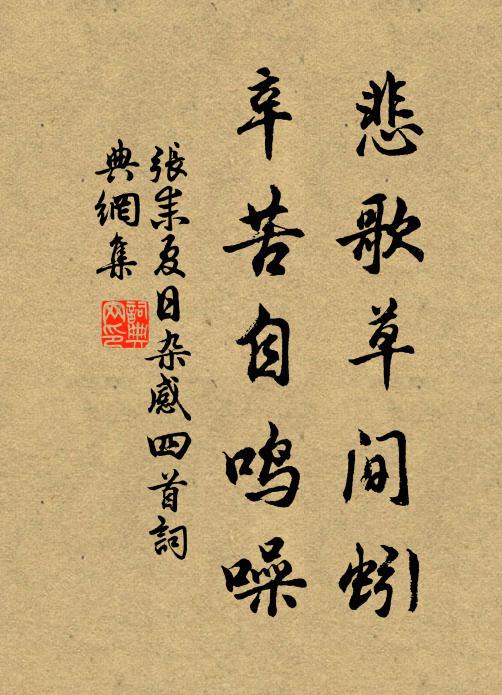 悲歌草间蚓
辛苦自鸣噪
張耒夏日杂感四首詞
典網集
詞典网印